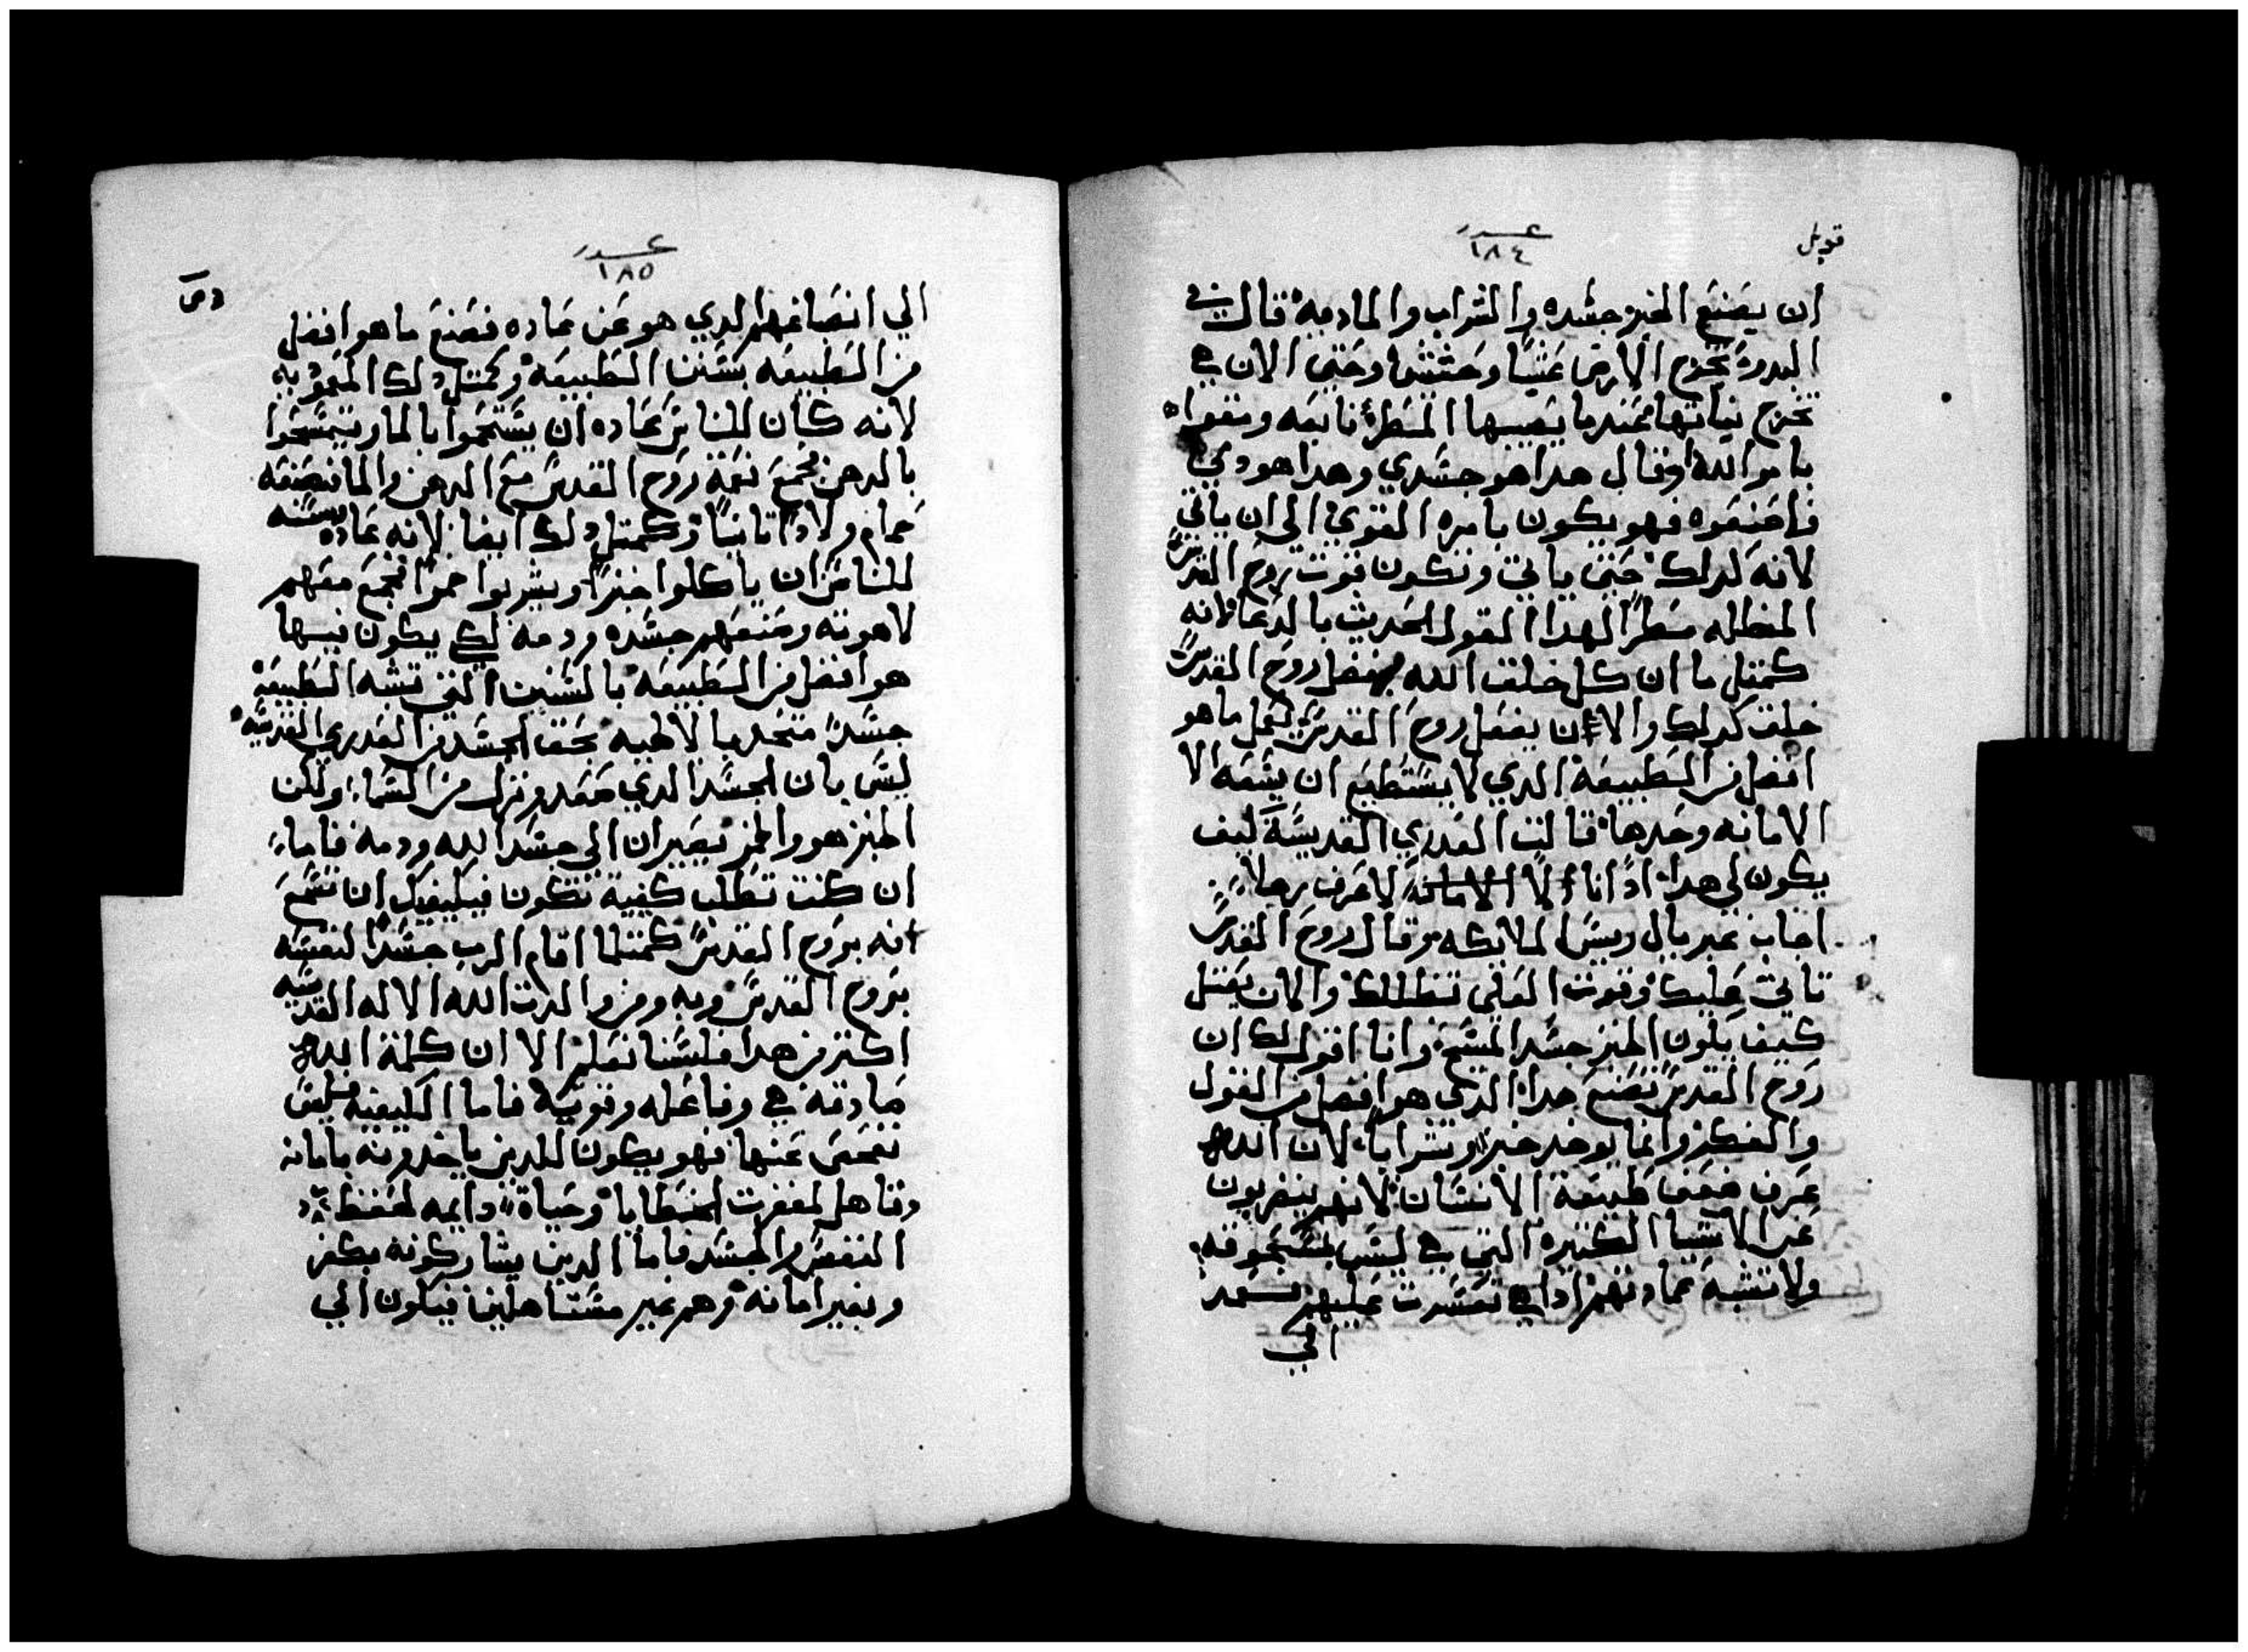 قوبل
عدد
١٨٤
ان يصنع الخبز جسده والشراب والما دمه قال في
البدو تخرج الارض عشبًا وحشيشًا وحتي الان هي
تخرج نباتها عندما يصيبها المطر نابعه ومتقواه
بامر الله وقال هدا هو جسدي وهدا هو دمي
فاصنعوه فهو يكون بامره القوي الي ان ياتي
لانه كدلك حتي ياتي وتكون قوت روح القدس
المظلله مطرًا لهدا القول الحديث بالدعا لانه
كمتل ما ان كل خلق الله بفعل روح القدس
خلق كدلك والان بفعل روح القدس تكمل ما هو
افضل من الطبيعه الدي لا يستطيع ان يسعه الا
الامانه وحدها قالت العدري القديسة كيف
يكون لي هدا ادًا انا لا اعرف رجلا
اجاب غبريال رييس الملايكه وقال روح القدس
تاتي عليك وقوت العلي تظللك والان يقتل
كيف يكون الخبز جسد المسيح وانا اقول لك ان
روح القدس تصنع هدا الدي هو افضل من القول
والفكر وانما يوخد خبزا وشرابا لان الله
عرف ضعف طبيعة الانسان لانهم ينفربون
عن الاشيا الكتيره التي هي ليس مسحوقه
ولا تشبه عمادتهم ادا هي تعسرت عليهم
الي
عدد
١٨٥
الي اتضاعهم الدي هو عن عاده فصنع ما هو افضل
من الطبيعه بسنن الطبيعه وكمتل دلك المعموديه
لانه كان للناس عاده ان يستحموا بالما ويتمسحوا
بالدهن فجمع نعمة روح القدس مع الدهن والما فصنعه
حمام ولادًا تانيًا وكمتل دلك ايضا لانه عاده
للناس ان ياكلوا خبزًا ويشربوا خمرًا فجمع معهم
لاهوته وصنعهم جسده ودمه لكي يكون فيها
هو افضل من الطبيعه بالسنن التي تشبه الطبيعه
جسدًا متحد بالالهيه بحق الجسد من العدري القديسه
ليس بان الجسد الدي صعد ونزل من السما ولكن
الخبز هو والخمر يصيران الي جسد الله ودمه فاما
ان كنت تطلب كفية تكون فيكيفيك ان تسمع
انه بروح القدس كمتلما اقام الرب جسدًا لنفسه
بروح القدس وبه ومن والدت الله الاله القديسه
اكتر من هدا فلسنا نعلم الا ان كلمة الله
صادقه هي وفاعله وقويه فاما الكيفيه فليس
تفحص عنها فهو يكون للدين ياخدونه بامانه
وتاهل لمغفرت الخطايا وحياة دايمه لحفظ
النفس والجسد فاما الدين يشاركونه بكفر
وبغير امانه وهم غير مستاهلين فيكون الي